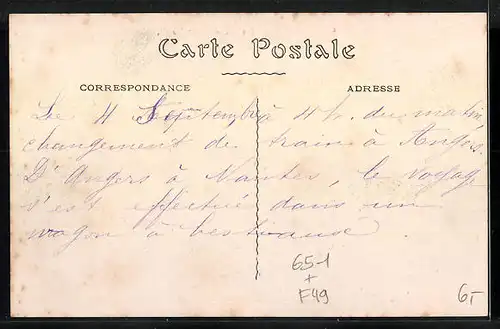 Carte Postale
CORRESPONDANCE
ADRESSE
Le 4 Septembre à 4 h. du matin
changement de train à Angers.
D'Angers à Nantes, le voyage
s'est effectué dans un
wagon à bestiaux.
65-1
+
F49
6,-